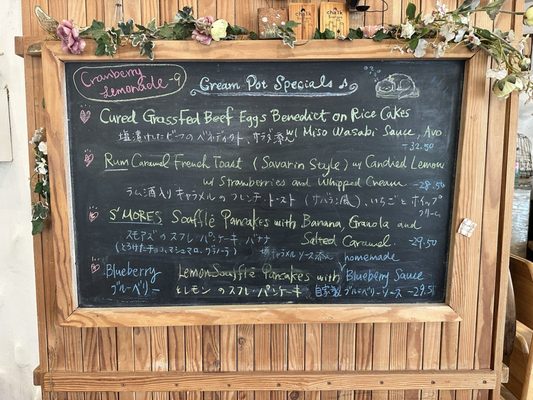 Cranberry Lemonade -9
Cream Pot Specials
Cured Grassfed Beef Eggs Benedict on Rice Cakes
w/ Miso Wasabi Sauce, Avo
塩漬けたビーフの ベネディクト、サラダ添え
-32.50
Rum Caramel French Toast (Savarin Style) w/ Candied Lemon
w/ Strawberries and Whipped Cream -28.50
ラム酒入り キャラメルの フレンチ トースト (サバラン風)、いちごと ホイップ
クリーム
S'MORES Soufflé Pancakes with Banana, Granola and
Salted Caramel -29.50
スモアズの スフレ・パンケーキ バナナ
(とろけたチョコ、マシュマロ、グラノーラ) 塩キャラメル ソース 添え
homemade
Blueberry Lemon Soufflé Pancakes with Blueberry Sauce
ブルーベリー とレモン の スフレ・パンケーキ 自家製 ブルーベリーソース -29.5